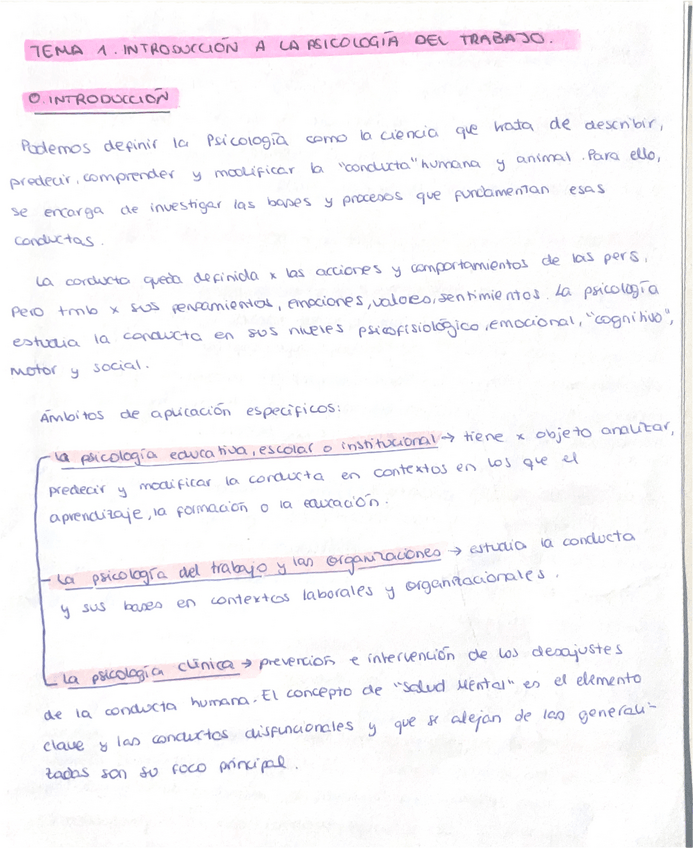 TEMA 1. INTRODUCCIÓN A LA PSICOLOGÍA DEL TRABAJO.
0. INTRODUCCIÓN
Podemos definir la Psicología como la ciencia que trata de describir,
predecir, comprender y modificar la "conducta" humana y animal. Para ello,
se encarga de investigar las bases y procesos que fundamentan esas
conductas.
La conducta queda definida x las acciones y comportamientos de las pers,
Pero tmb x sus pensamientos, emociones, valores, sentimientos. La psicología
estudia la conducta en sus niveles psicofisiológico, emocional, "cognitivo",
motor y social.
Ámbitos de aplicación específicos:
La psicología educativa, escolar o institucional → tiene x objeto analizar,
predecir y modificar la conducta en contextos en los que el
aprendizaje, la formación o la educación.
La psicología del trabajo y las organizaciones → estudia la conducta
y sus bases en contextos laborales y organizacionales.
La psicología clínica → prevención e intervención de los desajustes
de la conducta humana. El concepto de "Salud Mental" es el elemento
clave y las conductas disfuncionales y que se alejan de las generali-
zadas son su foco principal.